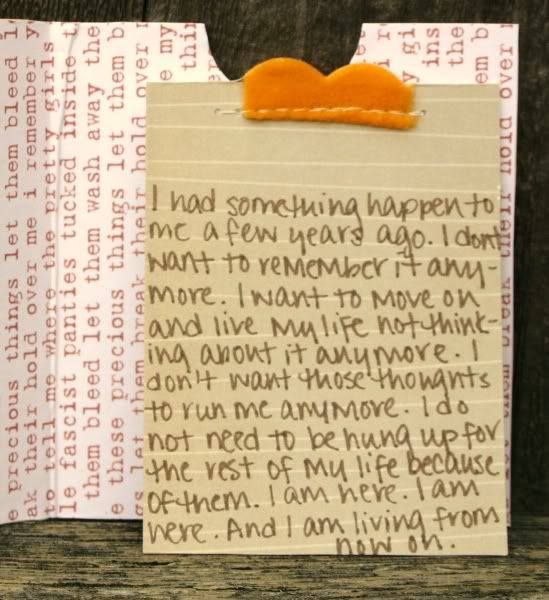 I had something happen to
me a few years ago. I don't
want to remember it any-
more. I want to move on
and live my life not think-
ing about it anymore. I
don't want those thoughts
to run me anymore. I do
not need to be hung up for
the rest of my life because
of them. I am here. I am
here. And I am living from
now on.
e precious things let them bleed l
ak their hold over me i remember y
to tell me where the pretty girls
le fascist panties tucked inside t
them bleed let them wash away the
e these precious things let them b
gs let them break their hold over
e my
thin
y gi
ins
em b
their hold over